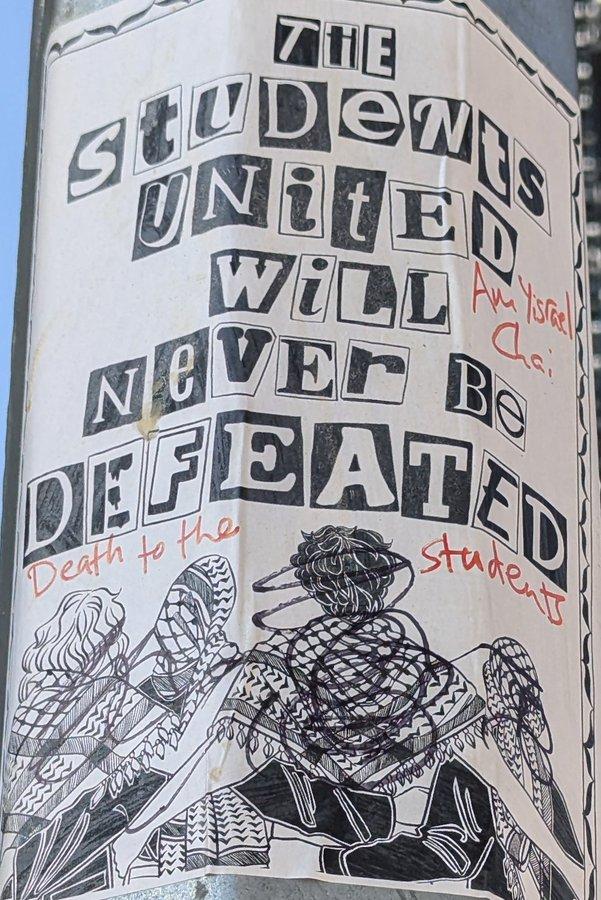 THE
StUDeNts
UNitED
WiLL
Am Yisrael
Chai
NeVEr Be
DEFEATED
Death to the students